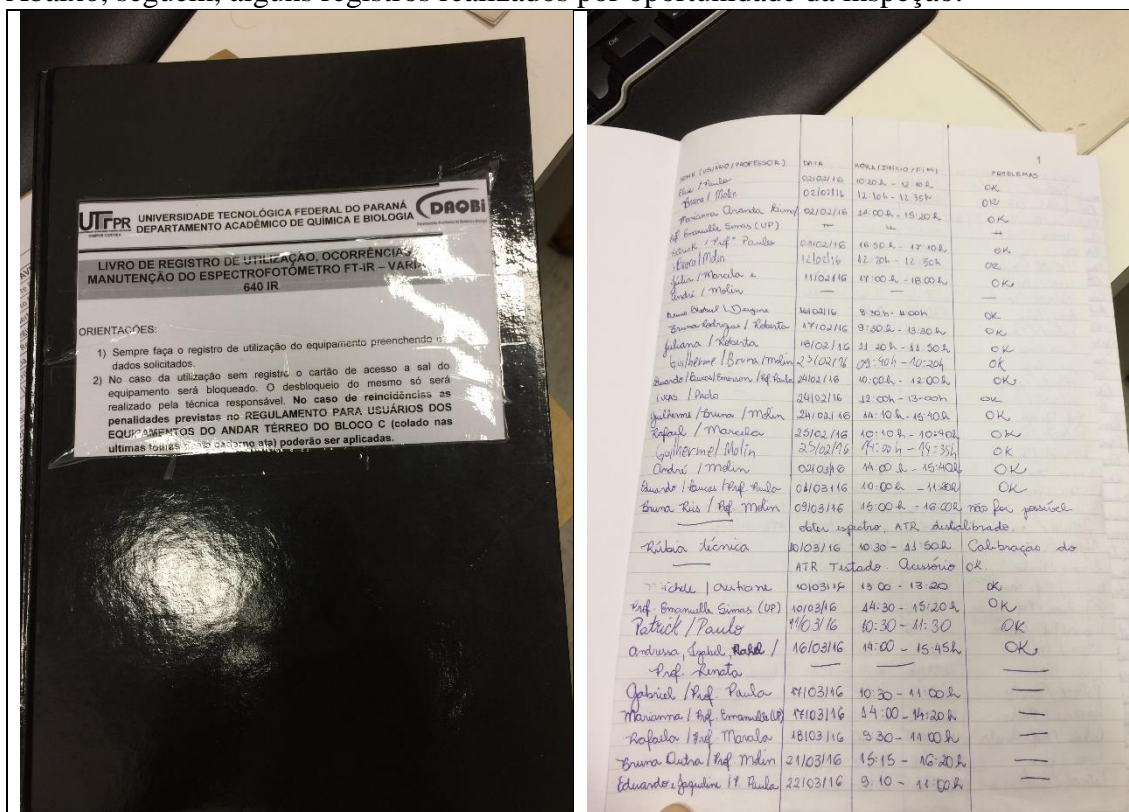 Abaixo, seguem, alguns registros realizados por oportunidade da inspeção:
UTFPR
UNIVERSIDADE TECNOLÓGICA FEDERAL DO PARANÁ
DEPARTAMENTO ACADÊMICO DE QUÍMICA E BIOLOGIA
DAQBi
LIVRO DE REGISTRO DE UTILIZAÇÃO, OCORRÊNCIAS
MANUTENÇÃO DO ESPECTROFOTÔMETRO FT-IR – VARIA
640 IR
ORIENTAÇÕES:
1) Sempre faça o registro de utilização do equipamento preenchendo
dados solicitados.
2) No caso da utilização sem registro o cartão de acesso a sal do
equipamento será bloqueado. O desbloqueio do mesmo só será
realizado pela técnica responsável. No caso de reincidências as
penalidades previstas no REGULAMENTO PARA USUÁRIOS DOS
EQUIPAMENTOS DO ANDAR TÉRREO DO BLOCO C (colado nas
ultimas folhas caderno ata) poderão ser aplicadas.
1
NOME (USUÁRIO/PROFESSOR) DATA HORA (INÍCIO/FIM) PROBLEMAS
/ Paulo 02/02/16 10:20h - OK
Bruna / Molin 02/02/16 12:10h - 12:35h OK
Marianna 02/02/16 14:00h - 15:20h OK
Prof. Emanuelle Simas (UP)
Patrick / Prof. Paulo 16:50h - 17:10h OK
/ Molin 12/02/16 12:20h - 12:50h OK
Júlia / Marcela e 17:00h - 18:00h OK
André / Molin — — —
8:30h - OK
Bruna Rodrigues / Roberta 17/02/16 9:30h - 13:30h OK
Juliana / Roberta 18/02/16 11:20h - 11:50h OK
Guilherme / Bruna / Molin 23/02/16 09:40h - 10:20h OK
Eduardo / Lucas / Emerson / Prof. Paula 24/02/16 10:00h - 12:00h OK
Lucas / Paulo 24/02/16 12:00h - 13:00h OK
Guilherme / Bruna / Molin 24/02/16 14:10h - 15:40h OK
Rafael / Marcela 25/02/16 10:10h - 10:40h OK
Guilherme / Molin 25/02/16 14:00h - 14:35h OK
André / Molin 02/03/16 14:00h - 15:40h OK
Eduardo / Lucas / Prof. Paula /03/16 10:00h - OK
Bruna Reis / Prof. Molin 09/03/16 15:00h - 16:00h não foi possível
— obter espectro, ATR descalibrado.
Rúbia técnica 10/03/16 10:30 - 11:50h Calibração do
ATR Testado. Acessório ok.
10/03/16 13:00 - 13:20 OK
Prof. Emanuelle Simas (UP) 10/03/16 14:30 - 15:20h OK
Patrick / Paulo 11/03/16 10:30 - 11:30 OK
Andressa, Izabel, / 16/03/16 14:00 - 15:45h OK
Prof. Renata — — —
Gabriel / Prof. Paula 17/03/16 10:30 - 11:00h —
Marianna / Prof. Emanuelle (UP) 17/03/16 14:00 - 14:20h —
Rafaela / Prof. Marcela 18/03/16 9:30 - 11:00h —
Bruna Dutra / Prof Molin 21/03/16 15:15 - 16:20h —
Eduardo e Jaqueline / P. Paula 22/03/16 9:10 - 11:00h —